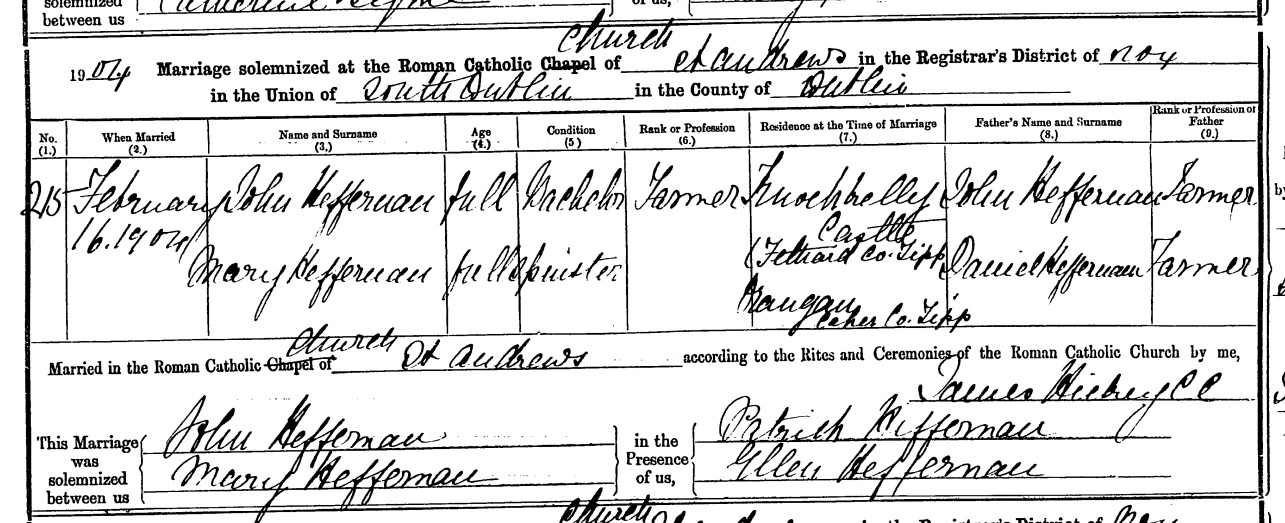 solemnized
between us
of us,
Church
1904 Marriage solemnized at the Roman Catholic Chapel of St Andrews in the Registrar's District of No 4
in the Union of South Dublin in the County of Dublin
No. (1.) When Married (2.) Name and Surname (3.) Age (4.) Condition (5) Rank or Profession (6.) Residence at the Time of Marriage (7.) Father's Name and Surname (8.) Rank or Profession of Father (9.)
215 February John Heffernan full Bachelor Farmer Knockkelly John Heffernan Farmer
16. 1904 Castle
Fethard Co. Tipp
Mary Heffernan full Spinster Daniel Heffernan Farmer
Caher Co. Tipp
Church
Married in the Roman Catholic Chapel of St Andrews according to the Rites and Ceremonies of the Roman Catholic Church by me,
James Hickey CC
This Marriage was solemnized between us
John Heffernan
Mary Heffernan
in the Presence of us,
Patrick Heffernan
Ellen Heffernan
Church